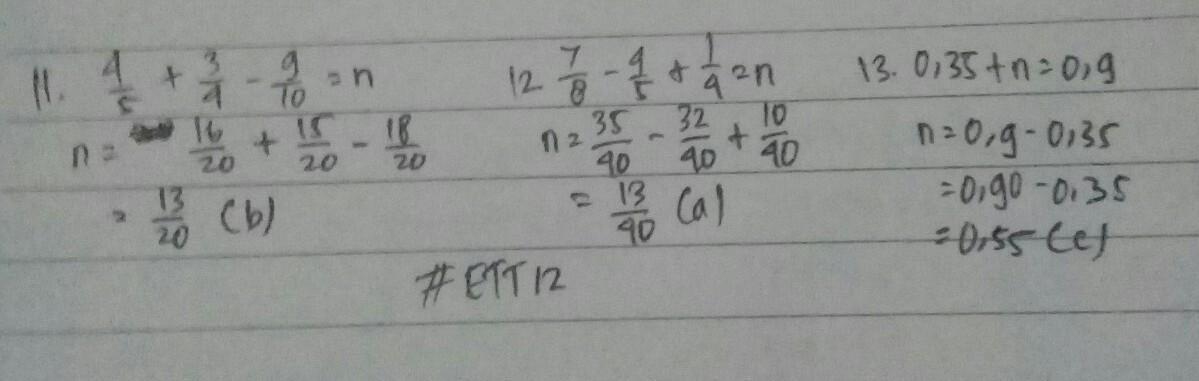 11. 4/5 + 3/4 - 9/10 = n
n = 16/20 + 15/20 - 18/20
= 13/20 (b)
12 7/8 - 4/5 + 1/4 = n
n = 35/40 - 32/40 + 10/40
= 13/40 (a)
13. 0,35 + n = 0,9
n = 0,9 - 0,35
= 0,90 - 0,35
= 0,55 (c)
#ETT12